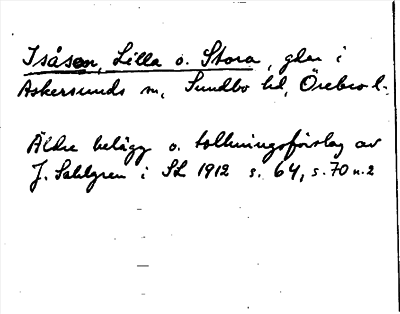 Isåsen, Lilla o. Stora, gdar i
Askersunds sn, Sundbo hd, Örebro l.
Äldre belägg o. tolkningsförslag av
J. Sahlgren i SL 1912 s. 64, s. 70 n. 2